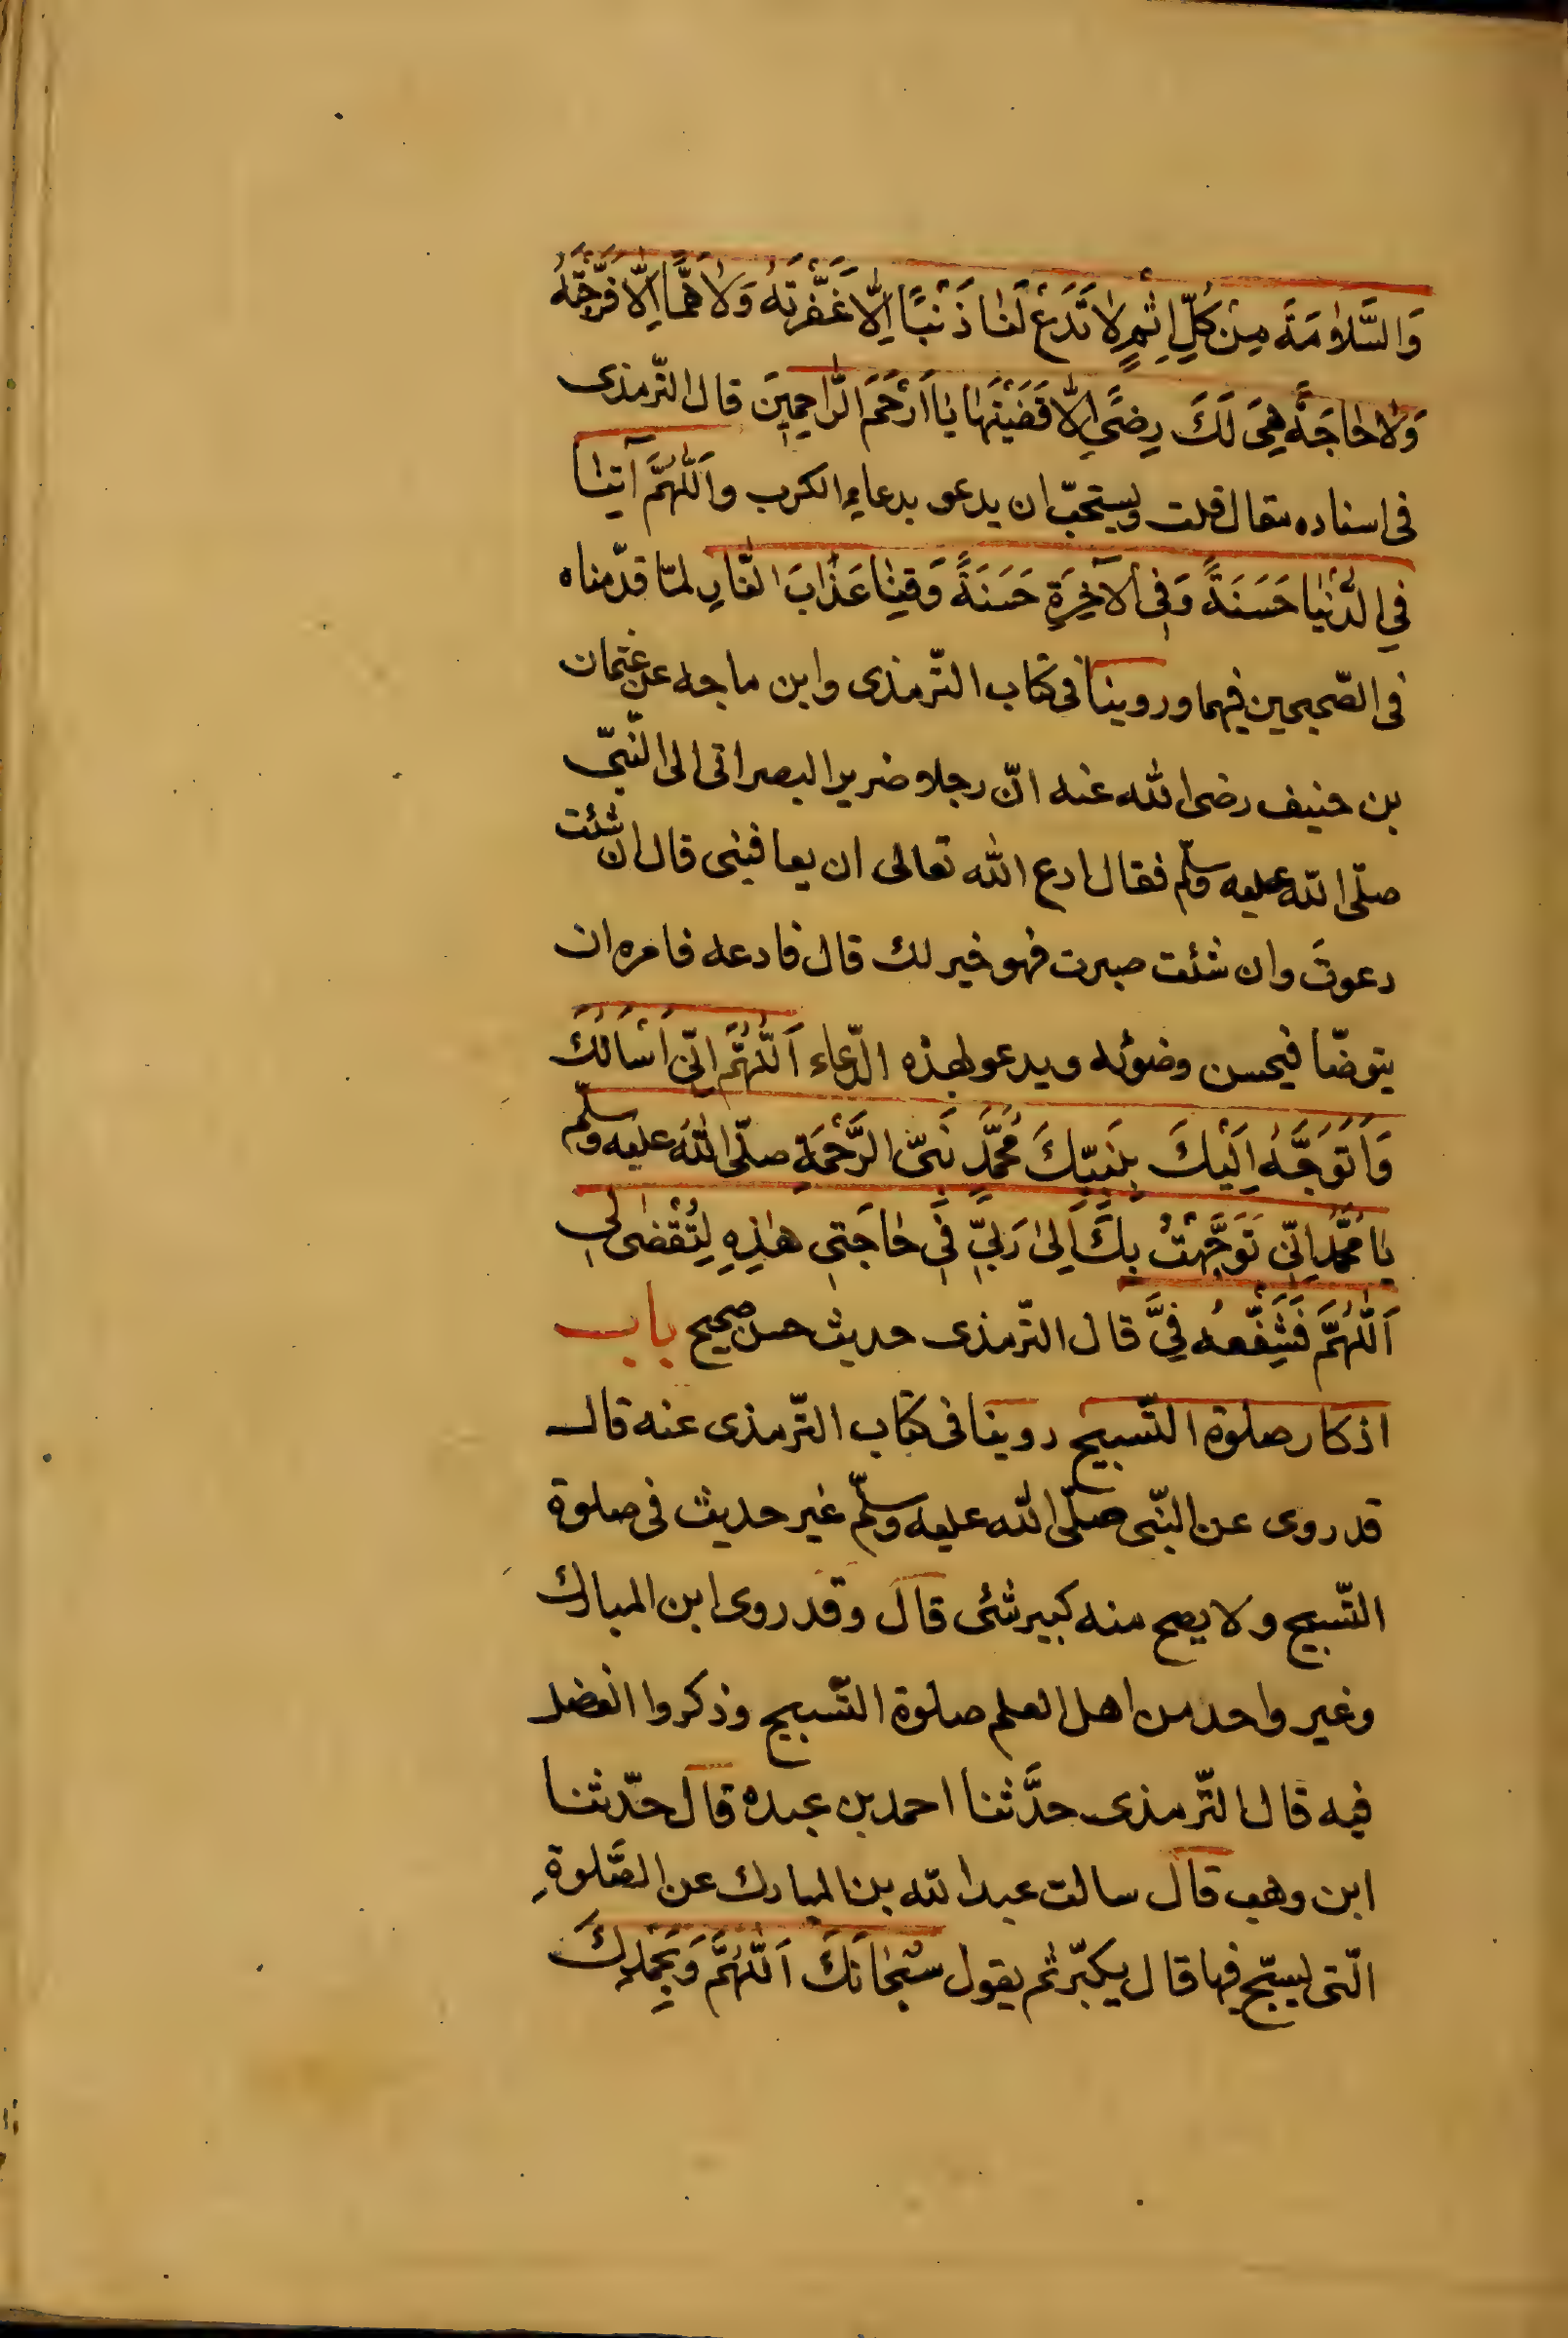 وَالسَّلَامَةَ مِنْ كُلِّ اِثْمٍ لَا تَدَعْ لَنَا ذَنْبًا اِلَّا غَفَرْتَهُ وَلَا هَمًّا اِلَّا فَرَّجْتَهُ
وَلَا حَاجَةً هِىَ لَكَ رِضًى اِلَّا قَضَيْتَهَا يَا اَرْحَمَ الرَّاحِمِينَ قال التّرمذى
فى اسناده مقال قلت ويستحبّ ان يدعو بدعاء الكرب واَللّٰهُمَّ آتِنَا
فِى الدُّنْيَا حَسَنَةً وَفِى الْآخِرَةِ حَسَنَةً وَقِنَا عَذَابَ النَّارِ لمّا قدّمناه
فى الصّحيحين فيهما وروينا فى كتاب التّرمذى وابن ماجه عن عثمان
بن حنيف رضى الله عنه انّ رجلا ضرير البصر اتى الى النّبىّ
صلّى الله عليه وسلّم فقال ادع الله تعالى ان يعافينى قال ان شئت
دعوتَ وان شئت صبرت فهو خير لك قال فادعه فامره ان
يتوضّا فيحسن وضوئه ويدعو لهذه الدّعاء اَللّٰهُمَّ اِنِّى اَسْاَلُكَ
وَاَتَوَجَّهُ اِلَيْكَ بِنَبِيِّكَ مُحَمَّدٍ نَبِىِّ الرَّحْمَةِ صلّى الله عليه وسلّم
يَا مُحَمَّدُ اِنِّى تَوَجَّهْتُ بِكَ اِلٰى رَبِّى فِى حَاجَتِى هٰذِهِ لِتُقْضٰى لِى
اَللّٰهُمَّ فَشَفِّعْهُ فِىَّ قال التّرمذى حديث حسن صحيح باب
اذكار صلوة التّسبيح روينا فى كتاب التّرمذى عنه قال
قد روى عن النّبى صلّى الله عليه وسلّم غير حديث فى صلوة
التّسبيح ولا يصح منه كبير شئى قال وقد روى ابن المبارك
وغير واحد من اهل العلم صلوة التّسبيح وذكروا الفضل
فيه قال التّرمذى حدَّثنا احمد بن عبده قال حدّثنا
ابن وهب قال سالت عبد الله بن المبارك عن الصَّلوةِ
الّتى يسبّح فيها قال يكبّر ثم يقول سُبْحَانَكَ اَللّٰهُمَّ وَبِحَمْدِكَ